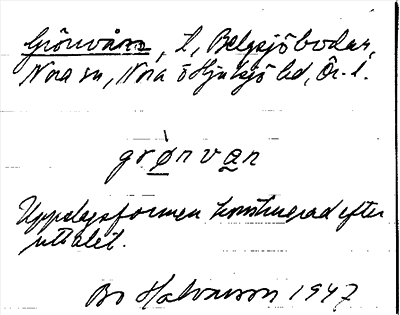 Grönvåna, t, Belgsjöbodar,
Nora sn, Nora o Hjulsjö hd, Ör. l.
grònvan
Uppslagsformen konstruerad efter
uttalet.
Bo Halvarson 1947